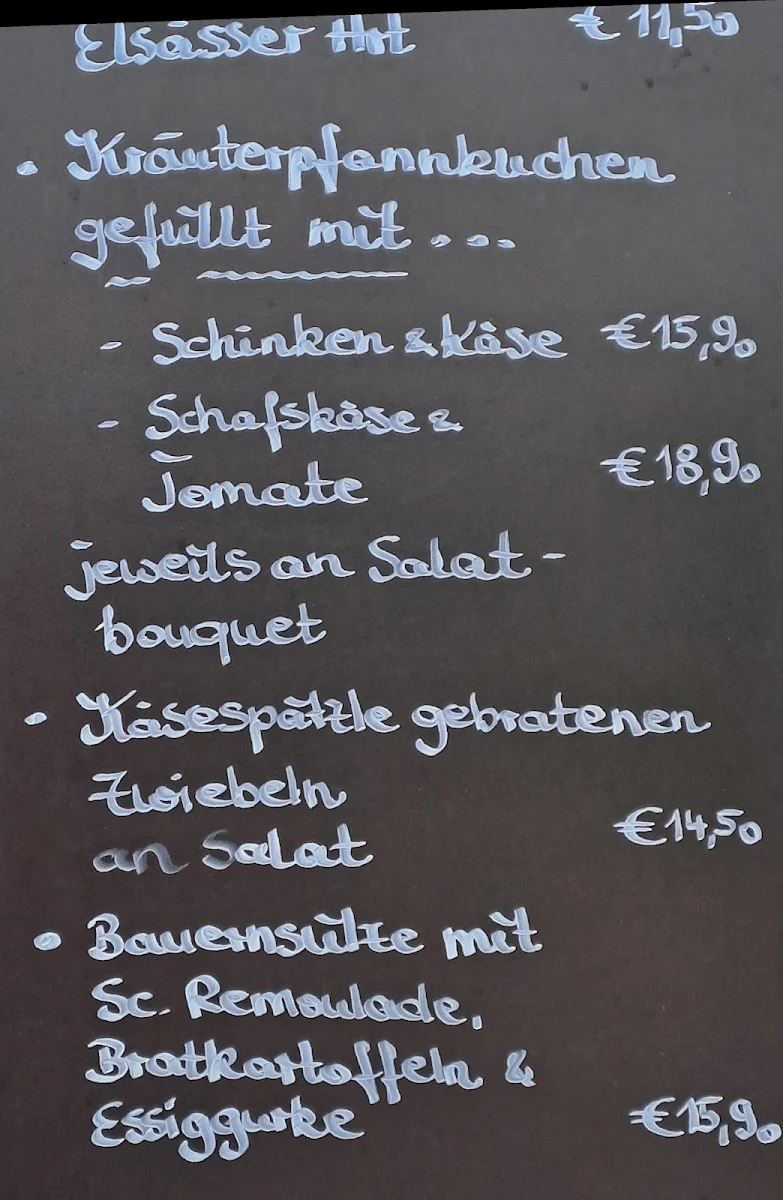 Elsässer Art € 11,50
• Kräuterpfannkuchen
gefüllt mit...
- Schinken & Käse €15,90
- Schafskäse &
Tomate €18,90
jeweils an Salat-
bouquet
• Käsespätzle gebratenen
Zwiebeln
an Salat €14,50
• Bauernsülze mit
Sc. Remoulade,
Bratkartoffeln &
Essiggurke €15,90